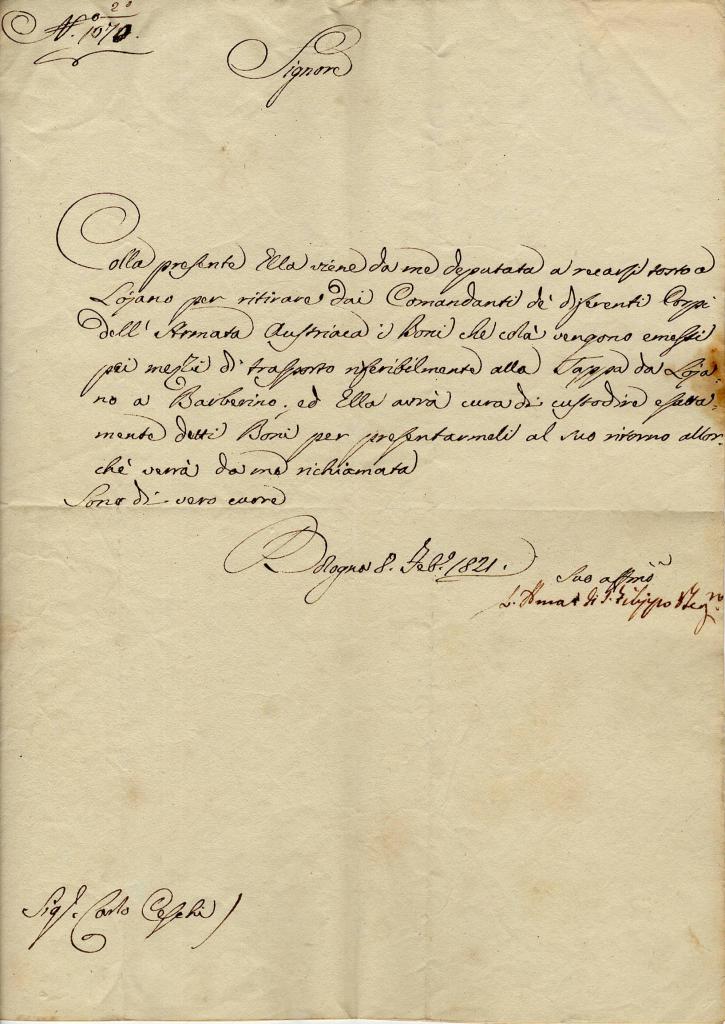 2°
N.° 1070.
Signore
Colla presente Ella viene da me deputata a recarsi tosto a
Lojano per ritirare dai Comandanti de' diferenti Corpi
dell' Armata Austriaca i Boni che colà vengono emessi
pei mezzi di trasporto riferibilmente alla Tappa da Loja-
no a Barberino, ed Ella avrà cura di custodire esatta-
mente detti Boni per presentarmeli al suo ritorno allor-
chè verrà da me richiamata
Sono di vero cuore
Bologna 8. Feb.° 1821.
Suo affmo
di S. Filippo
Sig.r Carlo Ceschi